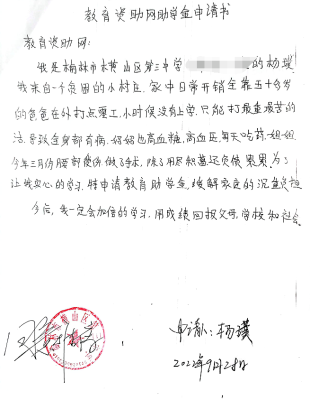 教育资助网助学金申请书
教育资助网：
我是榆林市横山区第三中学 的杨璞
我来自一个贫困的小村庄，家中日常开销全靠五十多岁
的爸爸在外打点零工，小时候没有上学，只能打最重最苦的
活，导致全身都有病，妈妈也高血糖，高血压，每天吃药，姐姐
今年三月份腰部受伤做了手术，除了用尽积蓄还负债累累，为了
让我安心的学习，特申请教育助学金，缓解家庭的沉重负担
今后，我一定会加倍的学习，用成绩回报父母，学校和社会
申请人：杨璞
2022年9月28日